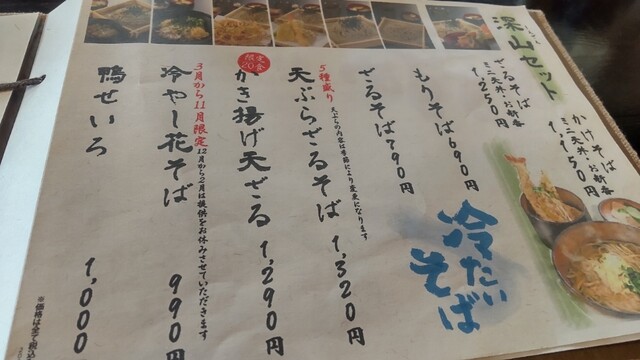 深山セット
かけそば
ミニ天丼・お新香
1,150円
ざるそば
ミニ天丼・お新香
1,250円
冷たい
そば
もりそば 690円
ざるそば 790円
5種盛り
天ぷらの内容は季節により変更になります
天ぷらざるそば 1,320円
限定
20食
かき揚げ天ざる 1,290円
3月から11月限定 12月から2月は提供をお休みさせていただきます
冷やし花そば 990円
鴨せいろ 1,000
※価格は全て税込